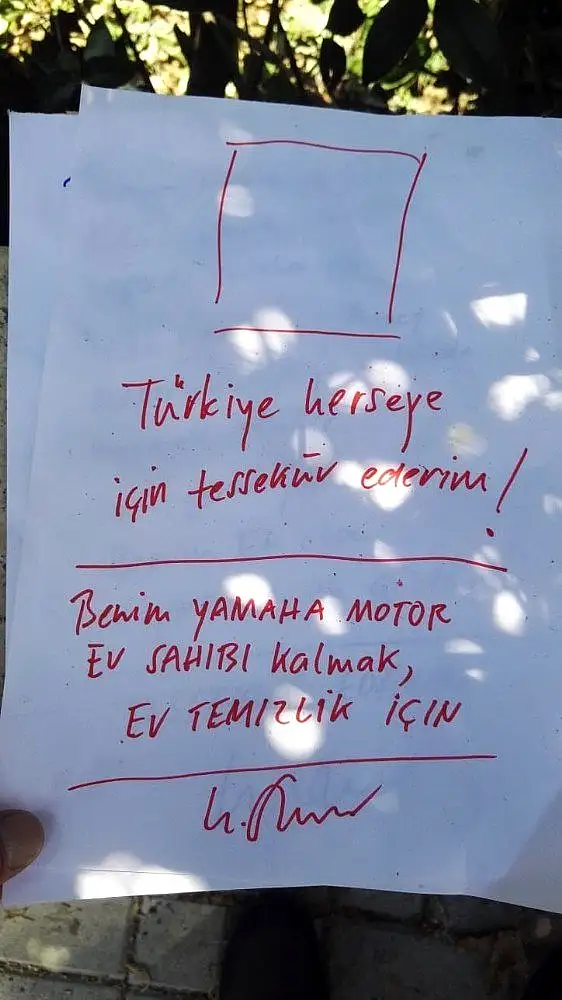 Türkiye herseye
için tessekür ederim!
Benim YAMAHA MOTOR
EV SAHIBI kalmak,
EV TEMIZLIK İÇİN